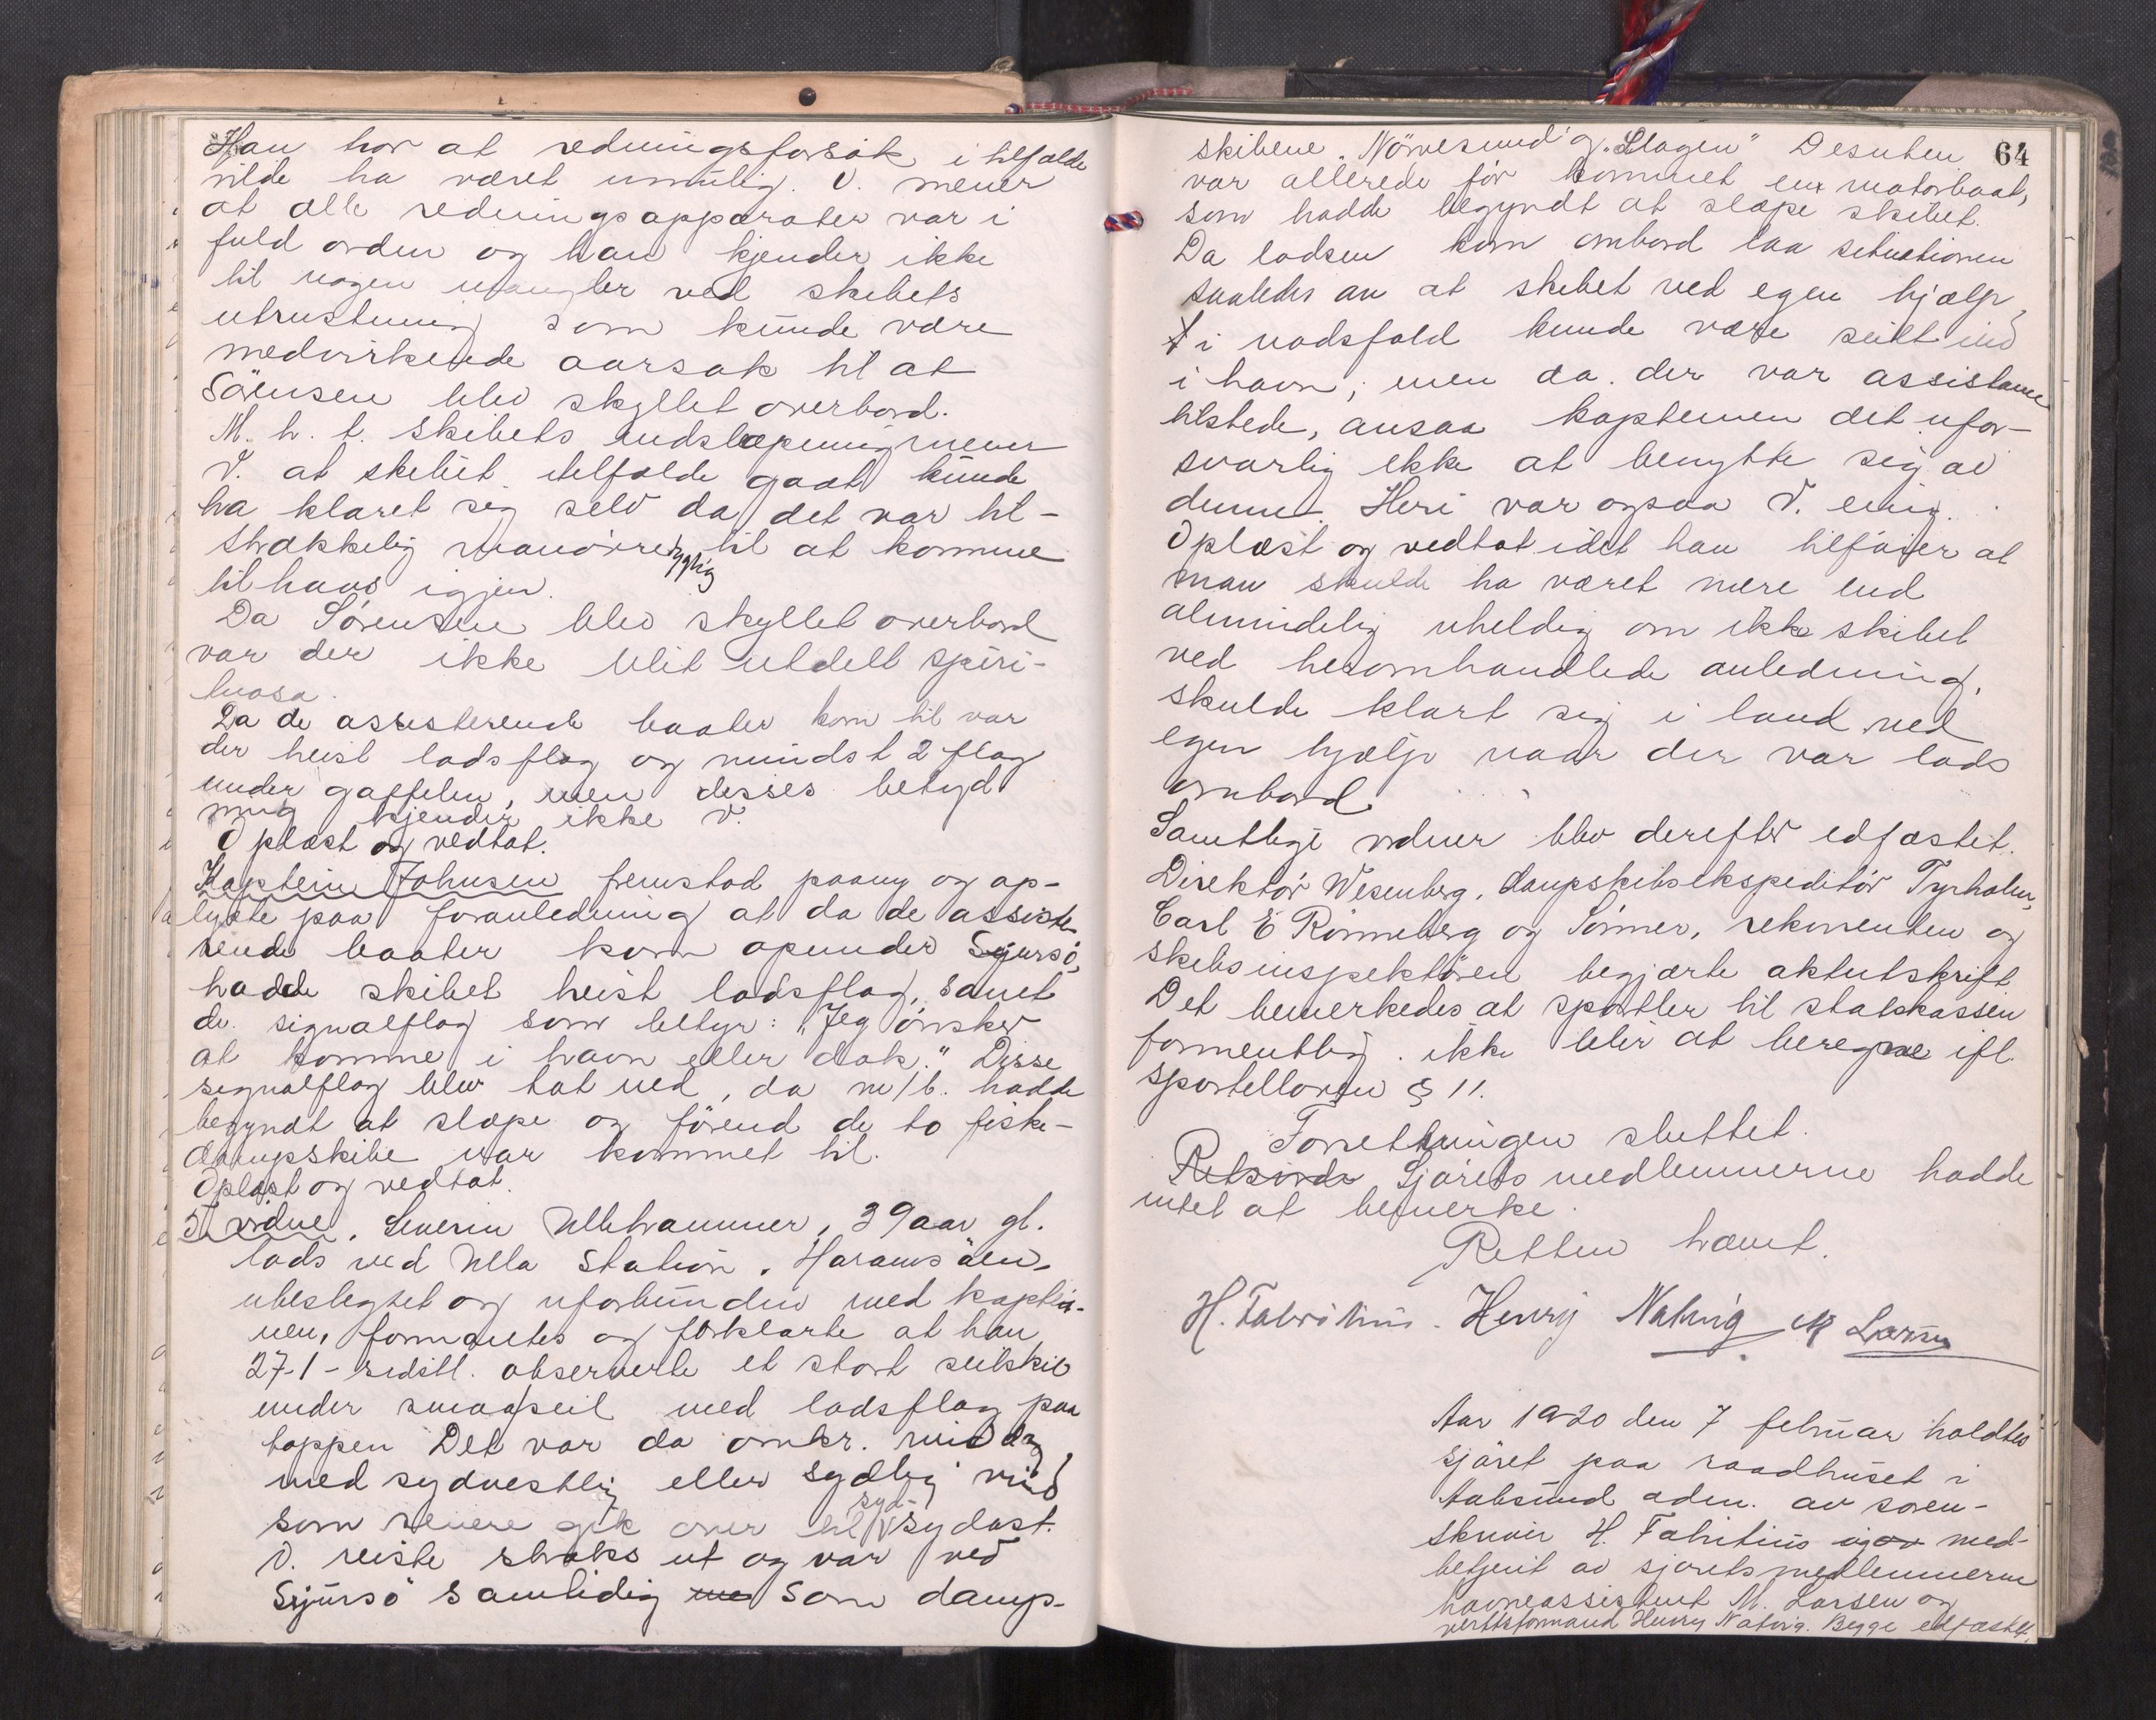 Han tror at redningsforsøk i tilfælde
vilde ha været umulig. V. mener
at alle redningsapparater var i
fuld orden og han kjender ikke
til nogen mangler ved skibets
utrustning som kunde være
medvirkende aarsak til at
Sörensen blev skyllet overbord.
M. h. t. skibets indslæpning mener
V. at skibet itilfælde godt kunde
ha klaret sig selv da det var til-
strækkelig manövredygtig til at komme
til havs igjen.
Da Sørensen blev skyllet overbord
var der ikke blit utdelt spiri-
tuosa.
Da de assisterende baater kom til var
der heist lodsflag og mindst 2 flag
under gaffelen, men disses betyd
ning kjender ikke V.
Oplæst og vedtat.
Kaptein Johnsen fremstod paany og op-
lyste paa foranledning at da de assiste-
rende baater kom opunder Sjursö,
hadde skibet heist lodsflag, samt
de signalflag som betyr: "Jeg önsker
at komme i havn eller dok." Disse
signalflag blev tat ned, da m/b. hadde
begyndt at slæpe og förend de to fiske-
dampskibe var kommet til.
Oplæst og vedtat.
5. vidne. Severin Ullahammer, 39 aar gl.
lods ved Ulla Station. Haramsöen,
ubeslegtet og uforbunden med kaptei-
nen, formantes og forklarte at han
27-1- sidstl. observerte et stort seilskib
under smaaseil med lodsflag paa
toppen Det var da omkr. middag
med sydvestlig eller sydlig vind
som senere gik over til syd-sydost.
V. reiste straks ut og var ved
Sjursö samtidig som damp-
64
skibene "Nörvesund" og "Slagen" Desuten
var allerede för kommet en motorbaat,
som hadde begyndt at slæpe skibet.
Da lodsen kom ombord laa situationen
saaledes an at skibet ved egen hjælp,
i nødsfald kunde være seilt ind
i havn; men da der var assistanse
tilstede, ansaa kapteinen det ufor-
svarlig ikke at benytte sig av
denne. Heri var ogsaa V. enig.
Oplæst og vedtat idet han tilföier at
man skulde ha været mere end
almindelig uheldig om ikke skibet
ved heromhandlede anledning,
skulde klart sig i land ved
egen hjælp naar der var lods
ombord.
Samtlige vidner blev derefter edfæstet.
Direktör Wesenberg, dampskibsekspeditör Tyrholm,
Carl E Rönneberg og Sönner, rekvirenten og
skibsinspektören begjærte aktutskrift
Det bemerkedes at sportler til statskassen
formentlig ikke blir at beregne ifl.
sportelloven § 11.
Forretningen sluttet.
Retsvidn Sjörets medlemmerne hadde
intet at bemerke.
Retten hævet.
H. Fabritius. Henry Natvig M Larsen
Aar 1920 den 7 februar holdtes
sjöret paa raadhuset i
Aalesund adm. av soren-
skriver H. Fabritius med-
betjent av sjøretsmedlemmerne
havneassistent M. Larsen og
verksformand Henry Natvig. Begge edfæstet.